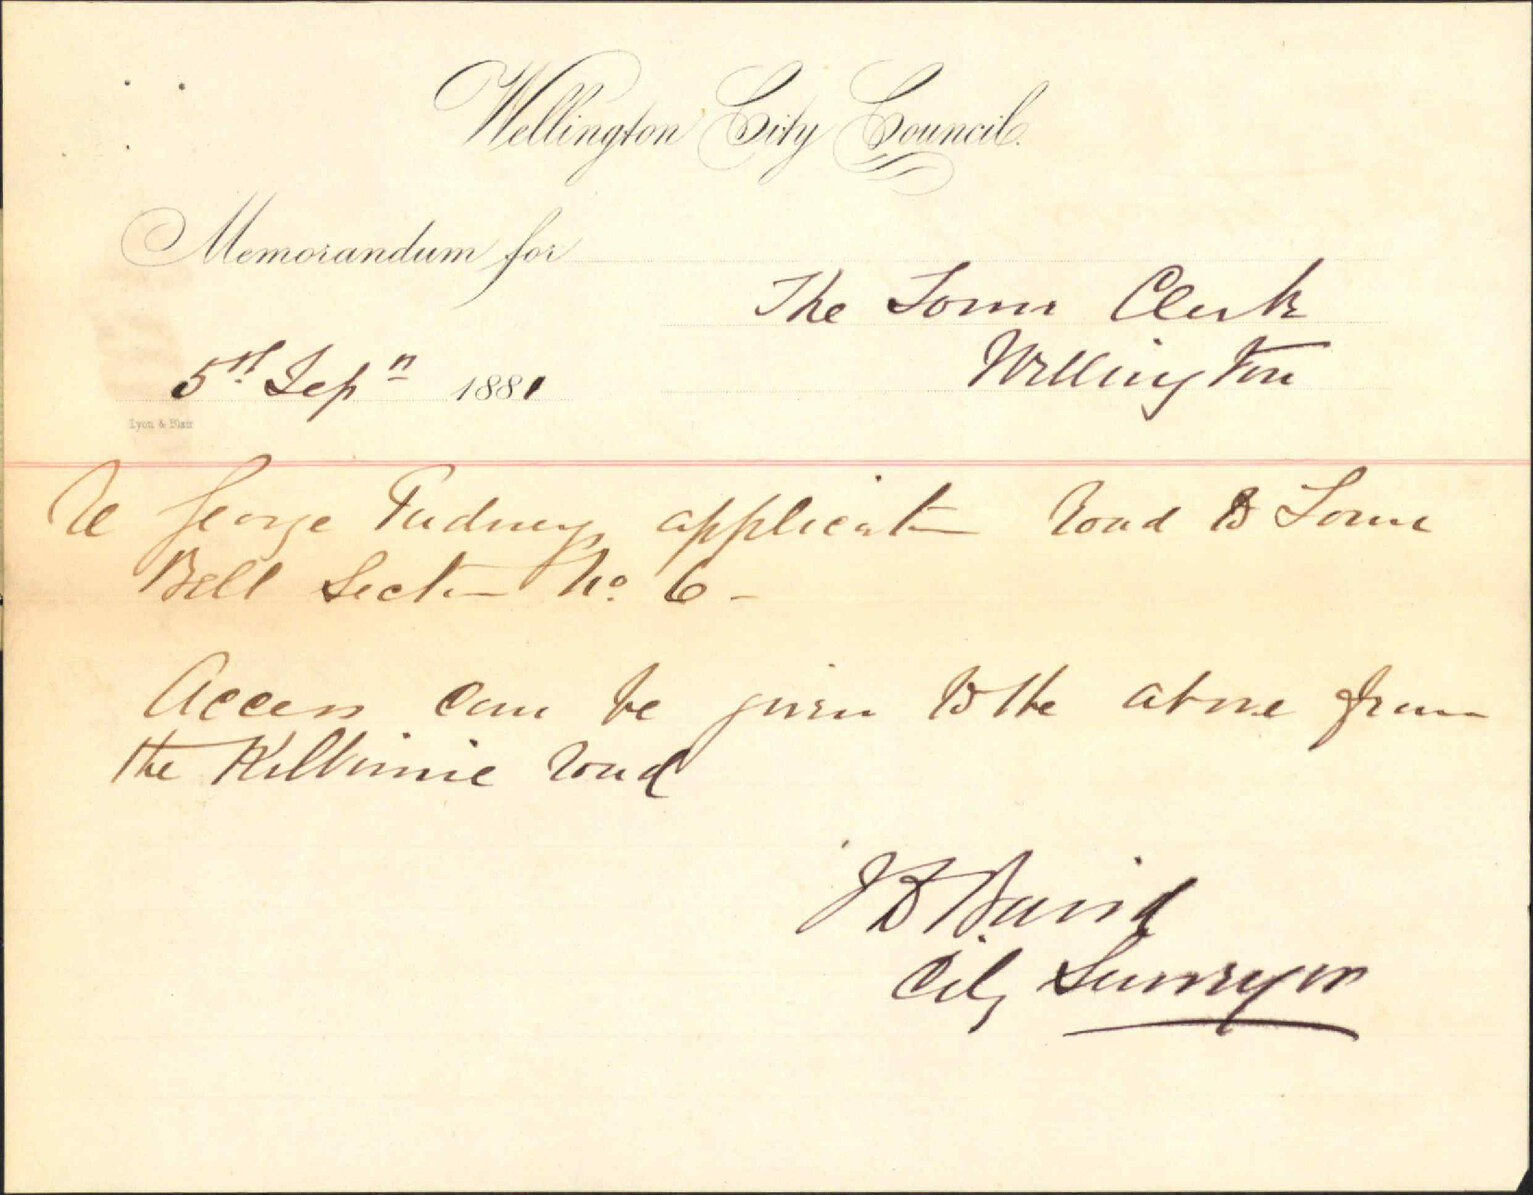 Wellington City Council.
Memorandum for
The Town Clerk
Wellington
5th Sepn 1881
Lyon & Blair
Re George Pudney application road to Town
Belt Section No. 6 -
Access can be given to the above from
the Kilbirnie road
J D Baird
City Surveyor